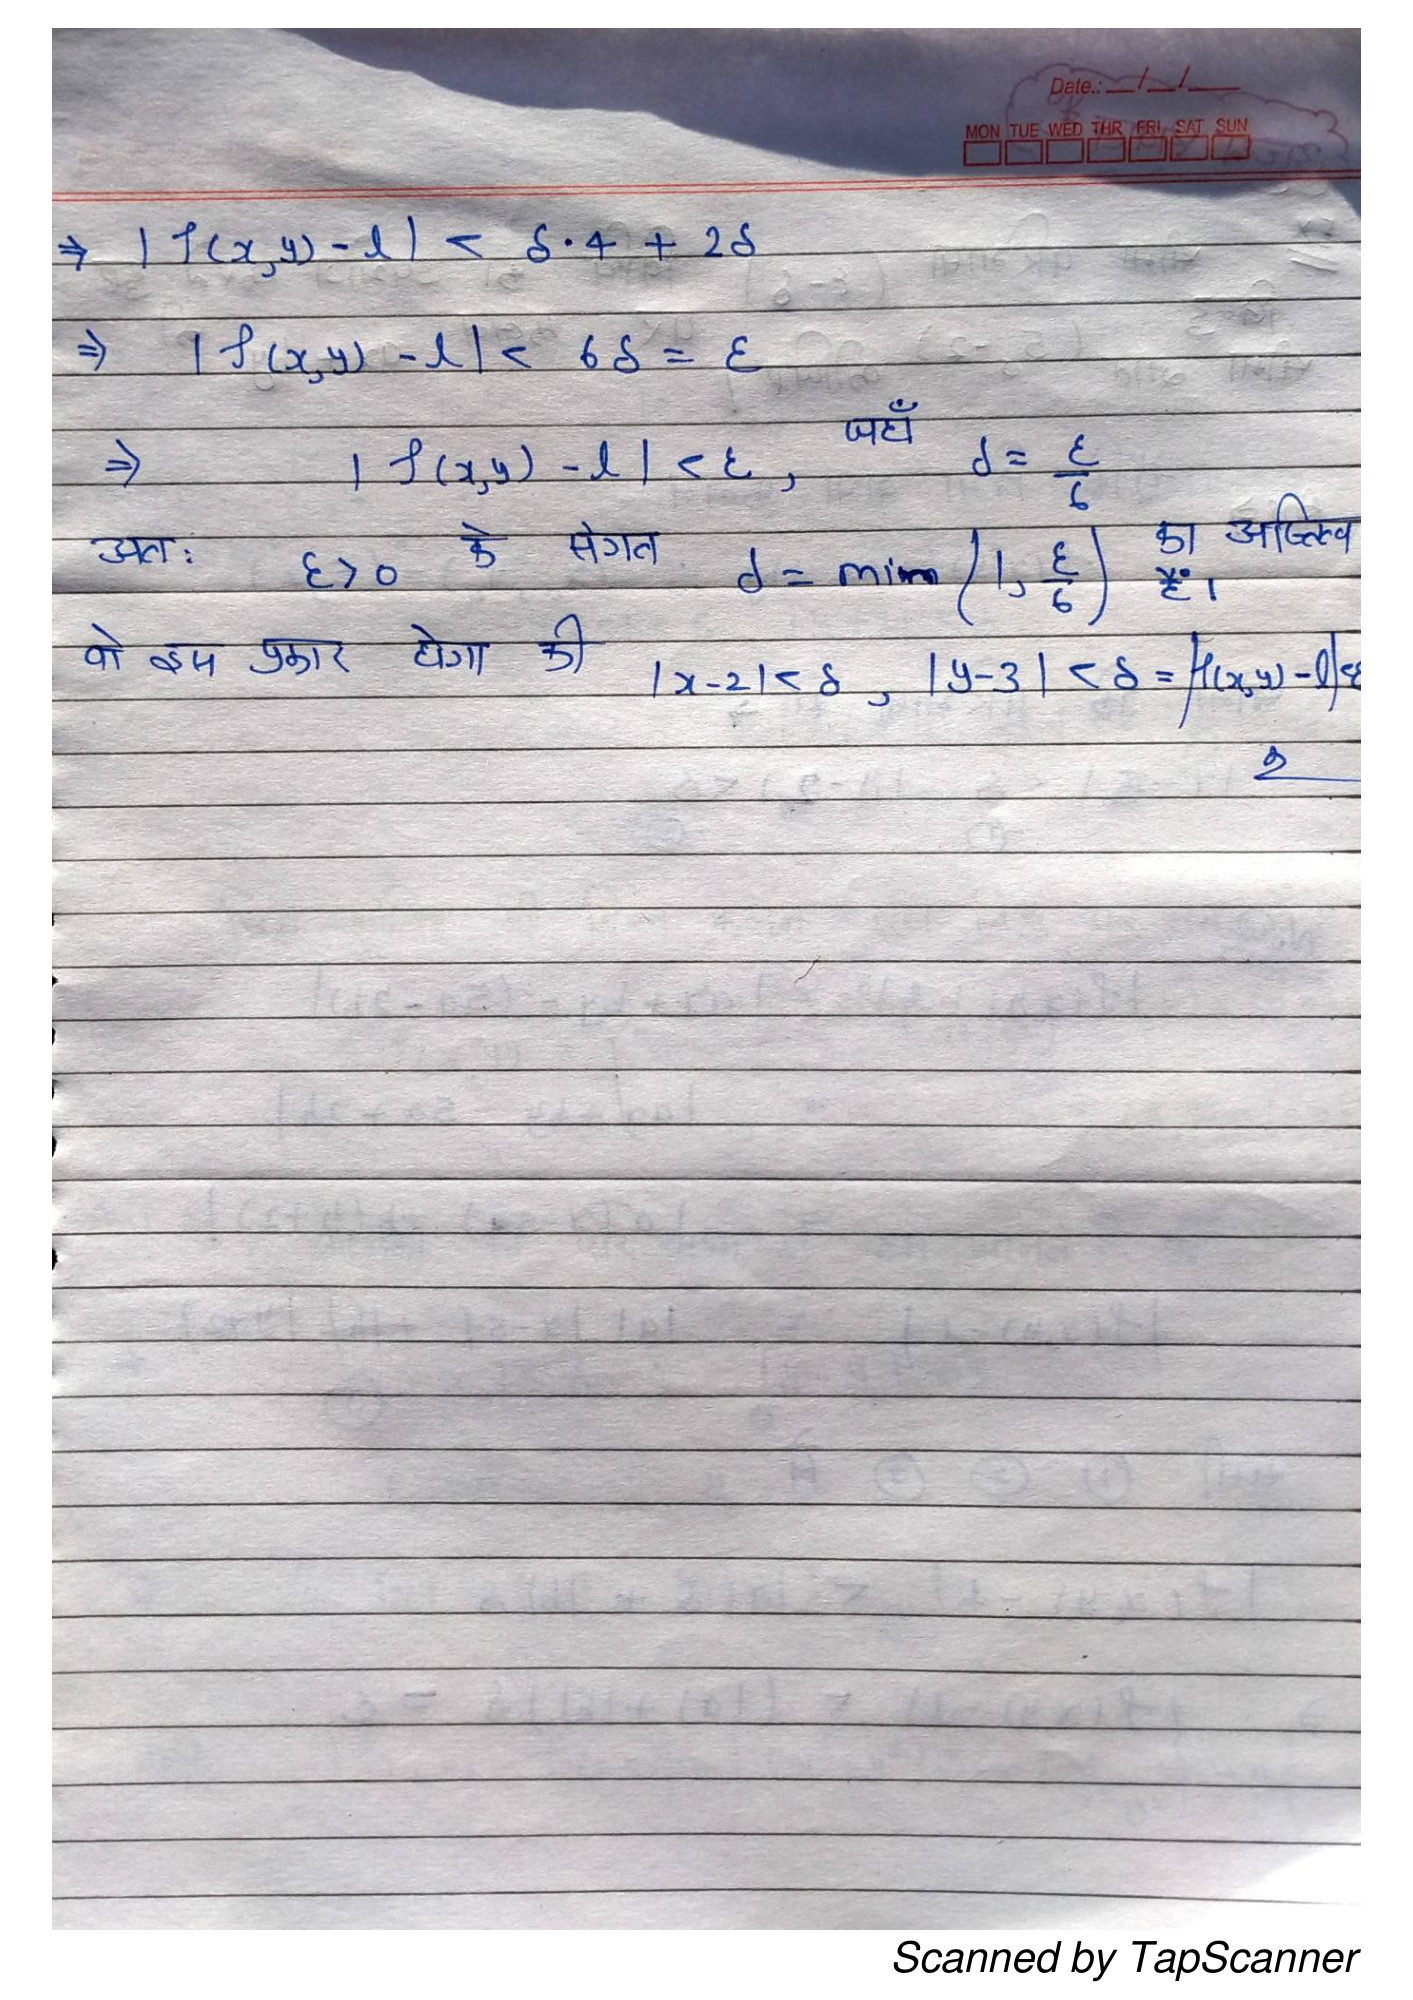 Date.: __/__/____
MON TUE WED THR FRI SAT SUN
⇒ |f(x,y) - l| < δ·4 + 2δ
⇒ |f(x,y) - l| < 6δ = ε
⇒ |f(x,y) - l| < ε, जहाँ δ = ε/6
अतः ε>0 के संगत δ = min (1, ε/6) का अस्तित्व हैं।
वो इस प्रकार होगा की |x-2| < δ, |y-3| < δ = |f(x,y) - l| < ε
Scanned by TapScanner